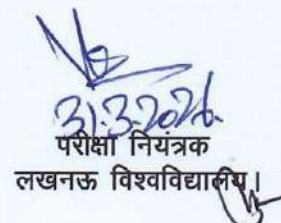 31.3.2026.
परीक्षा नियंत्रक
लखनऊ विश्वविद्यालय।